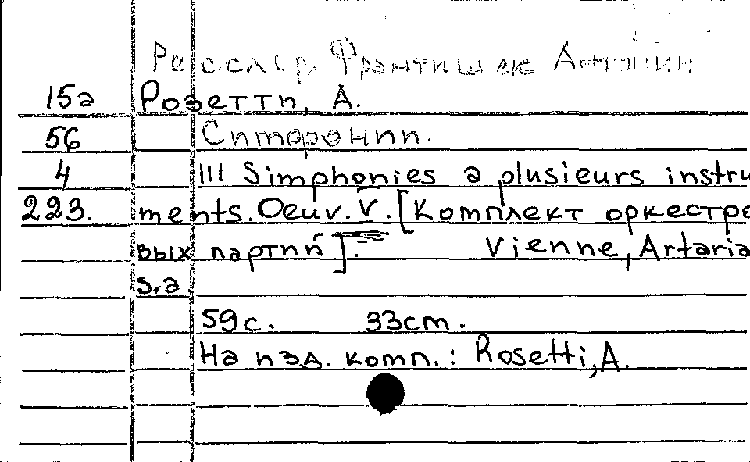 Ресслер Франтишек Антонин
15а Розетти, А.
56 Симфонии.
4 III Simphonies a plusieurs instru
223. ments. Oeuv. V. [Комплект оркестро
вых партий]. Vienne, Artaria
s.a.
59с. 33cm.
На изд. комп.: Rosetti, A.